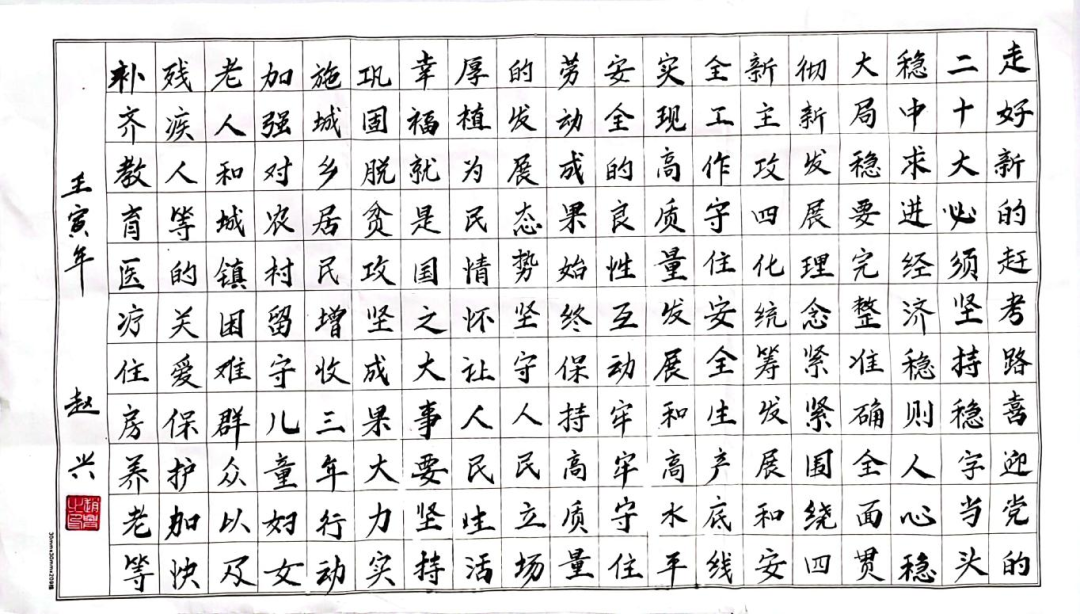 走好新的赶考路喜迎党的
二十大必须坚持稳字当头
稳中求进经济稳则人心稳
大局稳要完整准确全面贯
彻新发展理念紧紧围绕四
新主攻四化统筹发展和安
全工作守住安全生产底线
实现高质量发展和高水平
安全的良性互动牢牢守住
劳动成果始终保持高质量
的发展态势坚守人民立场
厚植为民情怀让人民生活
幸福就是国之大事要坚持
巩固脱贫攻坚成果大力实
施城乡居民增收三年行动
加强对农村留守儿童妇女
老人和城镇困难群众以及
残疾人等的关爱保护加快
补齐教育医疗住房养老等
壬寅年 赵兴
30mm×30mm×209格